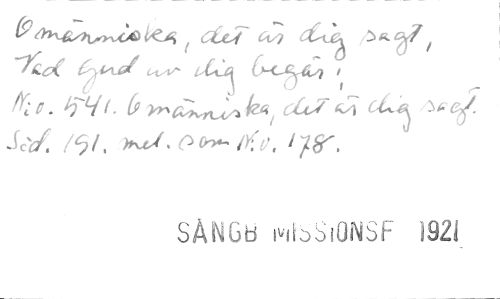 O människa, det är dig sagt,
Vad Gud av dig begär;
N:o. 541. O människa, det är dig sagt.
Sid. 191. mel. som N:o. 178.
SÅNGB MISSIONSF 1921